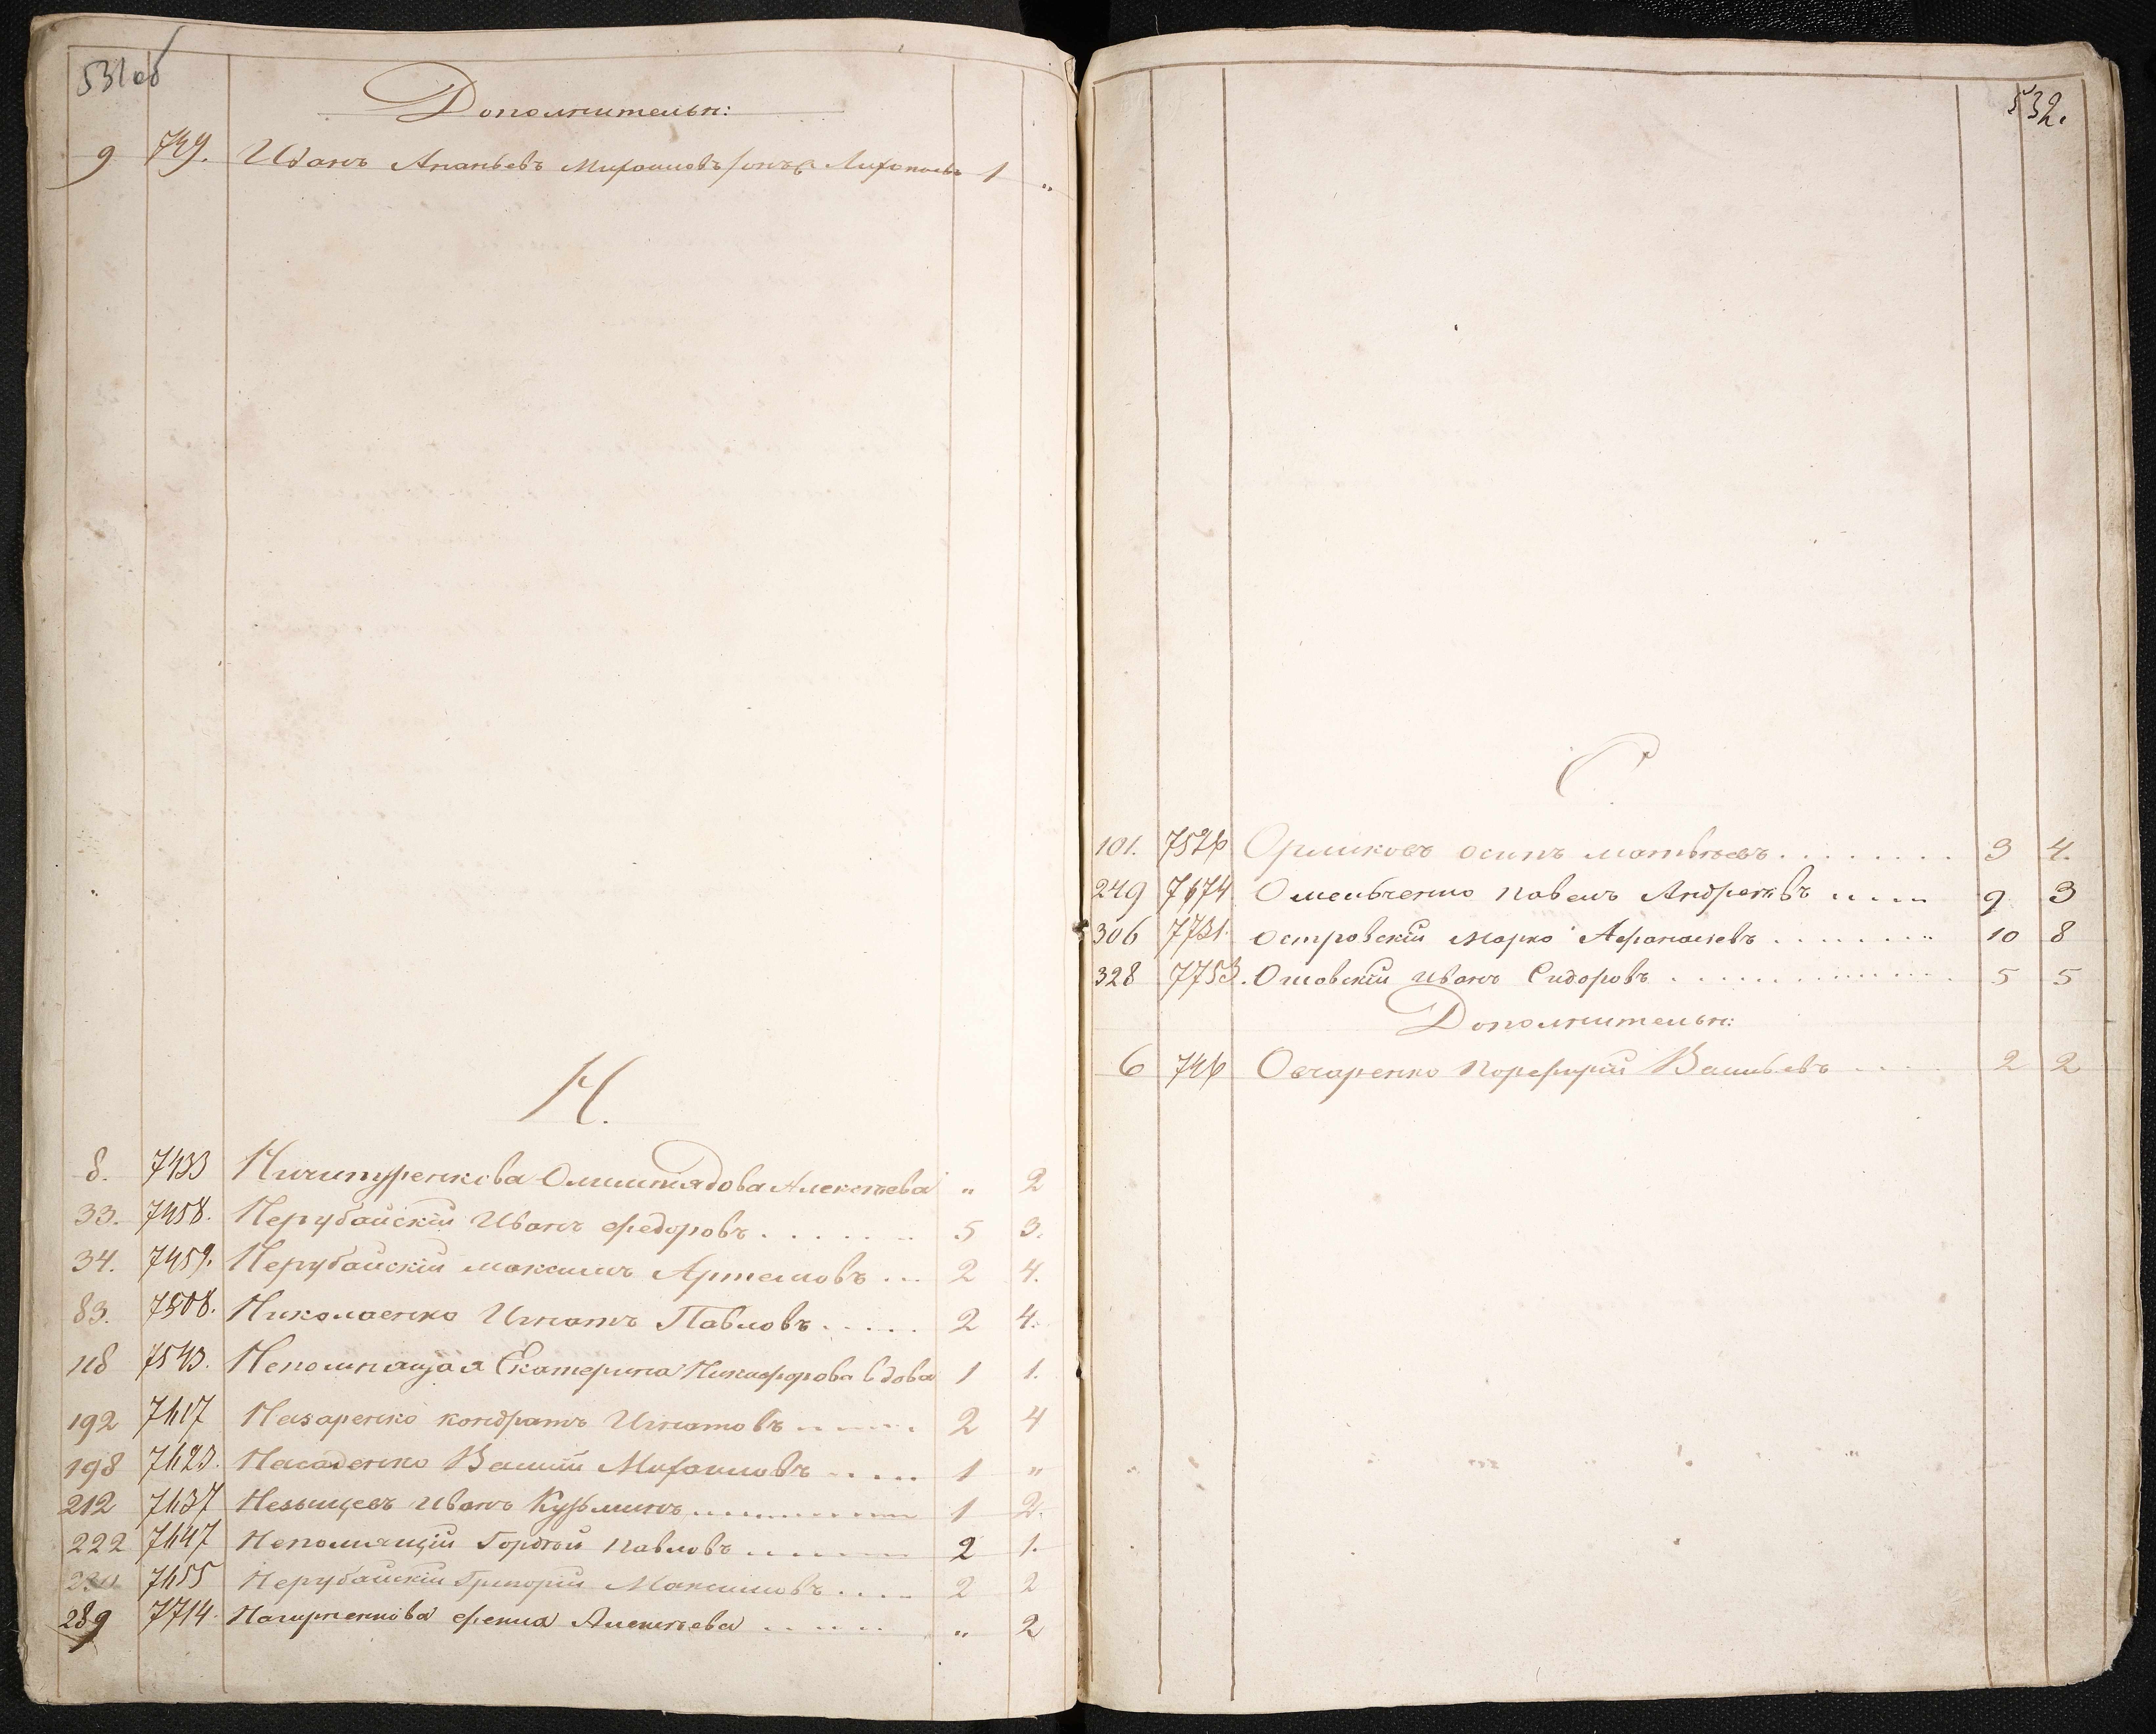 531 об
Дополнительн:
9 749. Иванъ Ананьевъ Михаиловъ 1 "
Н.
8. 7433 Ничипуренкова Алексѣева " 2
33. 7458. Нерубайскій Иванъ Федоровъ 5 3.
34. 7459. Нерубайскій Максимъ Артемовъ 2 4.
83. 7508. Николаенко Игнатъ Павловъ 2 4.
118 7543. Непомнящая Екатерина Никифорова вдова 1 1.
192 7617 Назаренко Кондратъ Игнатовъ 2 4
198 7623. Насаденко Василій Михаиловъ 1 "
212 7637 Иванъ Кузьминъ 1 2.
222 7647 Непомнящій Гордѣй Павловъ 2 1.
7655 Нерубайскій Григорій Максимовъ 2 2
289 7714. Алексѣева " 2
532.
О
101. 7526 Орликовъ Осипъ Матвѣевъ 3 4.
249 7674 Омельченко Павелъ Андреевъ 9 3
306 7731. Островскій Марко Афанасьевъ 10 8
328 7753. Иванъ Сидоровъ 5 5
Дополнительн:
6 746 Овчаренко Порефирій Васильевъ 2 2